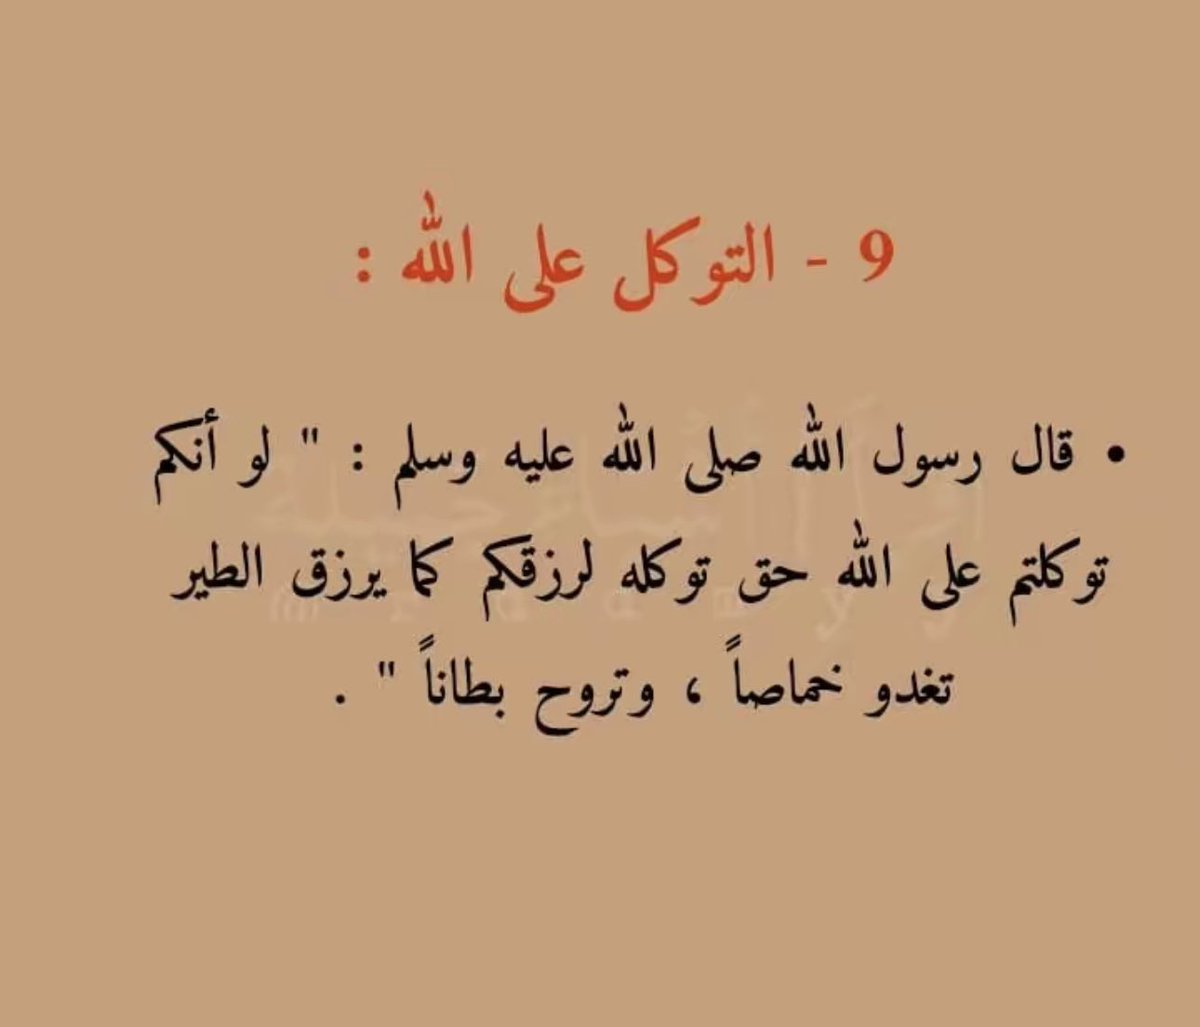 9 - التوكل على الله :
• قال رسول الله صلى الله عليه وسلم : " لو أنكم
توكلتم على الله حق توكله لرزقكم كما يرزق الطير
تغدو خماصاً ، وتروح بطاناً " .